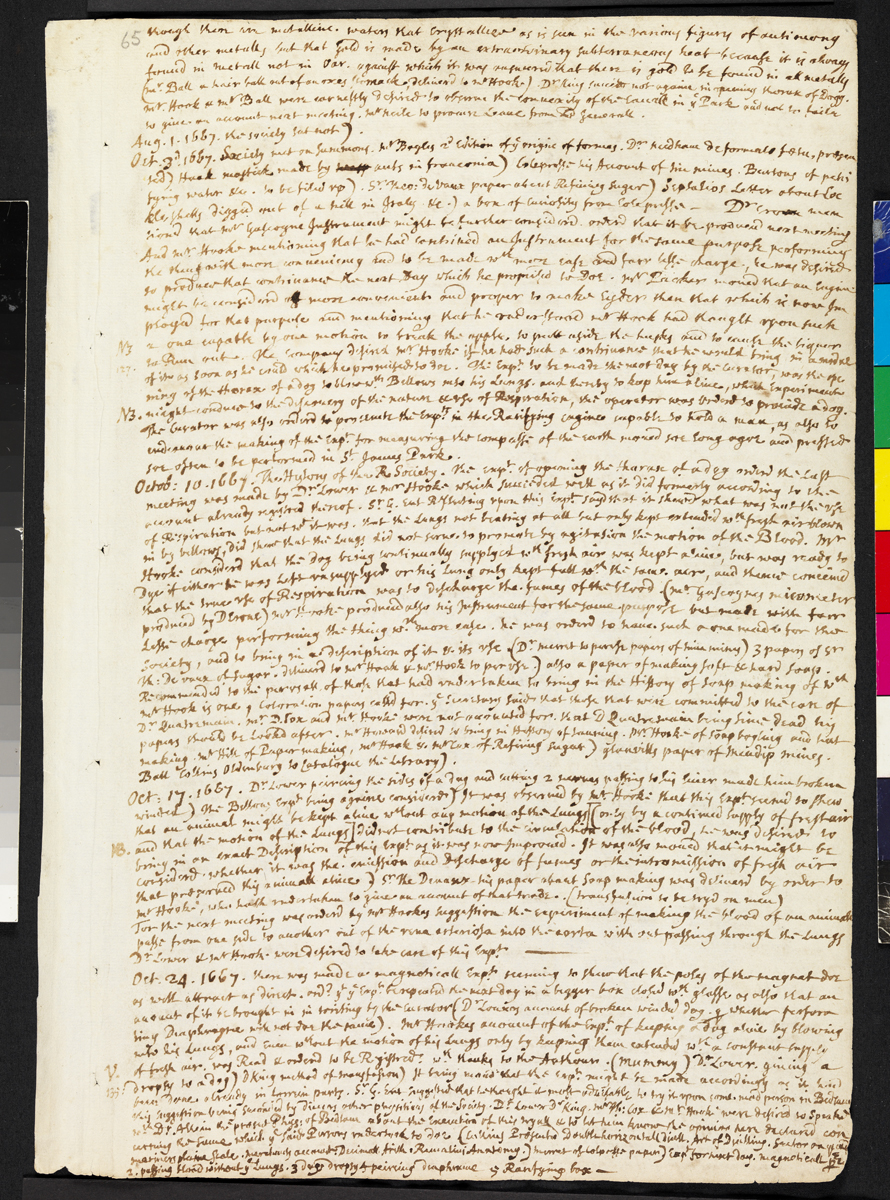 65
though there are metalline. waters that crystallize as is seen in the various figures of antimony
and other metalls but that gold is made by an extraordinary subterraneous heat because it is always
found in metall not in Oar. against which it was answered that there is gold to be found in all metalls
(mr. Ball a hair ball out of an oxes stomack, deliuerd to mr Hooke) Dr. King succeed not againe in opening thorax of Dogg.
mr. Hook & mr Ball were earnestly desired to observe the conuexity of the in ye Park and not to faile
to giue an account next meeting. mr. neile to procure Leaue from Ld generall.
Aug. 1. 1667. the society sat not).
Oct. 3d. 1667. Society met on summons. mr. Boyles 2d Edition of ye origine of formes. Dr. needham de formato fætu, presen
ted) Hook mastick made by ants in franconia) Colepresse his Account of tin mines. Burtons of petri
fying water &c. to be filed vp). Sr. Theo: de Vaux paper about Refining suger) Septalios Letter about Coc
kleshells digged out of a hill in Italy. &c.) a box of curiosity from Colepresse — Dr Croon men
tiond that mr. Gascogne Instrument might be further considerd. orderd that it be produced next meeting
And mr. Hooke mentioning that he had contriued an Instrument for the same purpose performing
the thing with more conueniency and to be made wth more ease and farr lesse charge, he was desired
to produce that contriuance the next Day which he promised to Doe. mr. Packer moued that an Engine
might be considerd of more conuenient and proper to make Cyder then that which is now Im
ployed for that purpose and mentioning that he vnderstood mr Hook had thought vpon such
a one capable by one motion to break the apples, to putt aside the husks and to cause the liquor
to Run out. The Company desired mr. Hooke if he had such a contriuance that he would bring in a modul
of it as soon as he could which he promised to doe. The expt. to be made the next day by the Curator, was the ope
ning of the thorax of a dog to blow wth Bellows into his Lungs. and thereby to keep him aliue, which experiment
might conduce to the discouery of the nature & vse of Respiration, the operator was orderd to prouide a dog.
The Curator was also orderd to prosecute the Expt. in the Rarifying engine capable to hold a man, as also to
endeauour the making of the Expt. for measuring the compasse of the earth moued soe long agoe and pressed
soe often to be performed in St. James Park.
Octob: 10. 1667. The History of the R. Society. The expt. of opening the thorax of a dog orderd the Last
meeting was made by Dr. Lower & mr Hooke which succeeded well as it did formerly according to the
account already registred therof. Sr. G. Ent Reflecting vpon this Expt. said that it shewd what was not the vse
of Respiration but not wt it was. that the Lungs not beating at all but only kept extended wth fresh air blown
in by bellows, did shew that the Lungs did not serue to promote by agitation the motion of the Blood. Mr
Hooke considerd that the dog being continually supplyed wth fresh air was kept aliue, but was ready to
Dye if either he was Left vnsupplyed or his Lung only kept full wth the same aer, and thence conceiud
that the true vse of Respiration was to discharge the fumes of the blood. (mr. Gascoynes micometer
produced by Dr Crone) mr Hooke produced also his Instrument for the same purpose but made with farr
Lesse charge performing the thing wth more ease. he was orderd to haue such a one made for the
Society, and to bring in a description of it & its vse (Dr. merret to peruse papers of tinn mines) 3 papers of Sr
Th: de vaux of sugar. deliuerd to mr Hoak & mr. Hook to peruse.) also a paper of making soft & hard soap.
Recommended to the perusall of those that had undertaken to bring in the History of soap making of wch
mr Hook is one, ye Coloration papers calld for. ye secretary said that those that were committed to the care of
Dr. Quatermain. mr. D. Cox and mr Hooke were not accounted for. that Dr Quatremain being since dead his
papers should be Lookd after. mr Howard desired to bring in History of tanning. mr. Hooke of soap boyling and hat
making. mr Hill of Paper making, mr Hook & mr Cox. of Refining Sugar) glanvills paper of Mendip mines.
Ball Collins Oldenburg to Catalogue the Library).
Oct: 17. 1667. Dr Lower piercing the sides of a dog and cutting 2 nerues passing to his liuer made him broken
winded) The Bellows Expt being againe considerd) It was obserued by mr Hooke that this expt. seemd to shew
that an animal might be kept aliue wthout any motion of the Lungs [only by a continued supply of fresh air
NB. and that the motion of the Lungs] did not contribute to the circulation of the blood, he was desired to
bring in an exact Description of this Expt as it was now Improued. It was also moued that it might be
considerd. whether it was the emission and discharge of fumes or the intromission of fresh air
that preserued this animall aliue.) Sr. The Devaux his paper about Soap making was deliuerd by order to
mr Hooke, who hath undertaken to giue an account of that trade. (transfusion to be tryd on men)
For the next meeting was orderd by mr Hookes suggestion the experiment of making the blood of an animall
passe from one side to another out of the vena arteriosa into the aorta with out passing through the Lungs
Dr. Lower & mr Hook. were desired to take care of this Expt.
Oct. 24. 1667. there was made a magneticall Expt seeming to shew that the poles of the magnet doe
as well attract as direct. ordd. yt ye Expt be repeated the next day in a bigger box closed wth glasse as also that an
account of it be brought in in writing by the curator (Dr Lowers account of broken winded dog. whether perfora
ting Diaphragme will not doe the same). Mr Hookes account of the Expt. of keeping a Dog aliue by blowing
into his Lungs, and euen wthout the motion of his Lungs only by keeping them extended wth a constant supply
of fresh air. was Read & orderd to be Registred. wth thanks to the Authour. (mummy) Dr. Lower. giuing a
dropsy to a dog) Dr King method of transfusion) It being moued that the expt. might be made accordingly as it had
been done already in forrein parts. Sr. G. Ent. suggested that he thought it most aduisable, to try it vpon some mad person in Bedlam
this suggestion being seconded by diuers other physitians of the Society. Dr. Lower Dr King. mr. Cox & mr. Hook were desired to speake
wth Dr. Allen the present Phys: of Bedlam about the execution of this tryall & to let them know the opinion here declared con
cerning the same which ye said Persons undertook to doe (Collins Presented horizontall Diall, Art of Dialling. Sector on
mariners plaine scale. Merchants accounts Decimall Arith. Riuuelius Anatomy) merret of Colepresse paper) Expt for next day. magneticall
2. passing blood without ye Lungs. 3 dogs dropsy 4 peircing diaphrame 5 Rarifying box —